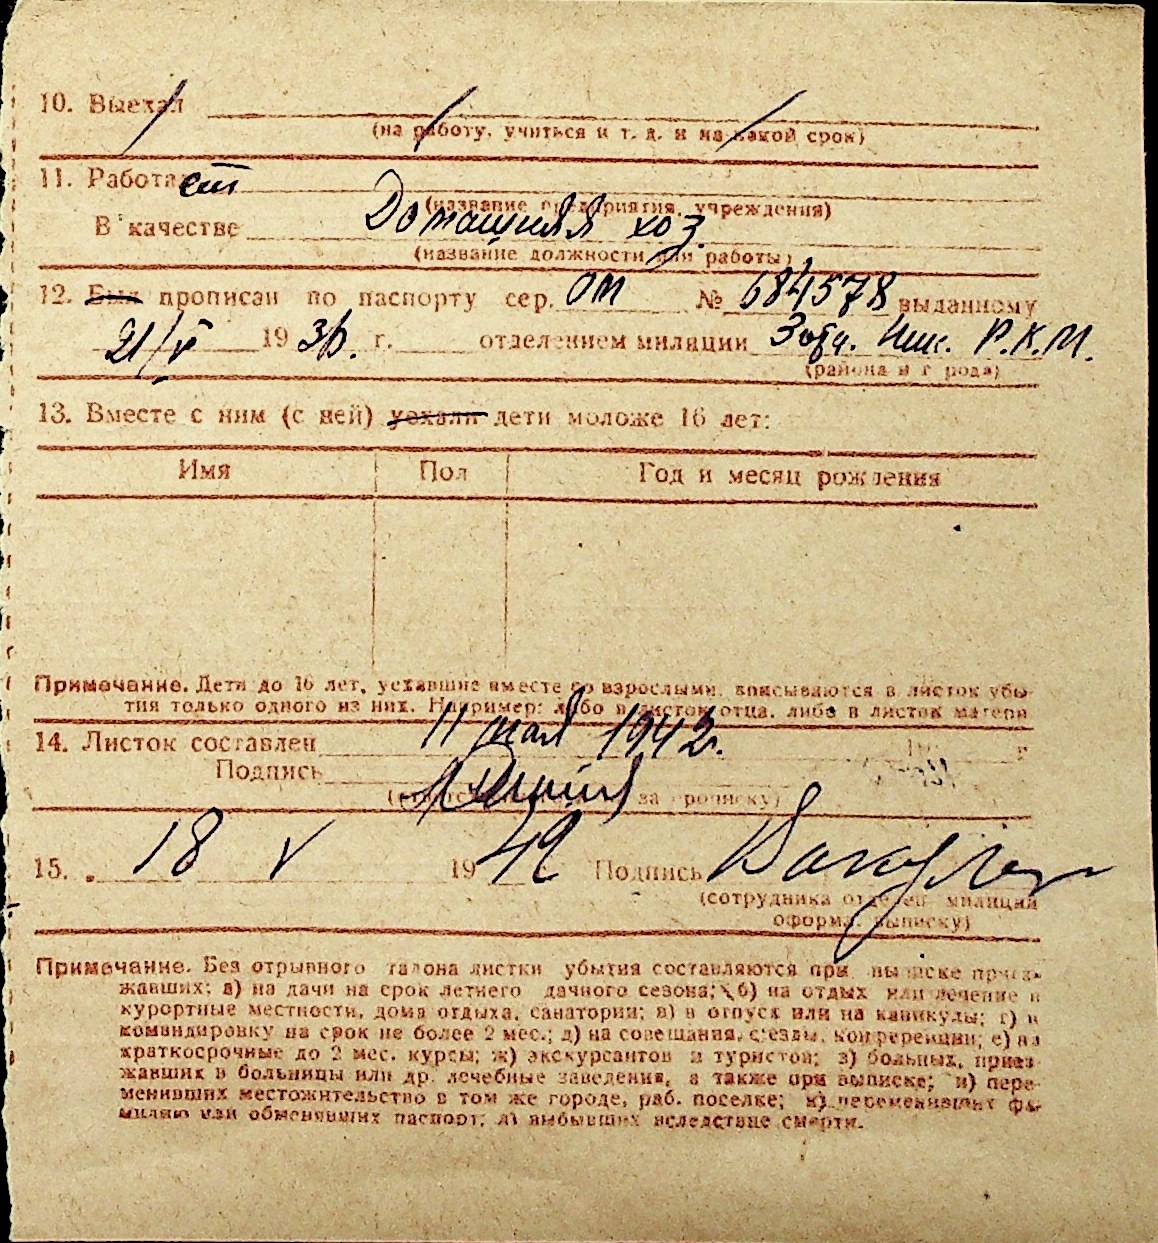 10. Выехал
(на работу, учиться и т. д. и на какой срок)
11. Работает
(название предприятия, учреждения)
В качестве Домашняя хоз.
(название должности или работы)
12. Был прописан по паспорту сер. ОМ № 684578 выданному
21/V 1936. г. отделением милиции Р.К.М.
(района и города)
13. Вместе с ним (с ней) уехали дети моложе 16 лет:
Имя Пол Год и месяц рождения
Примечание. Дети до 16 лет, уехавшие вместе со взрослыми, вписываются в листок убы-
тия только одного из них. Например: либо в листок отца, либо в листок матери
14. Листок составлен 11 мая 1942 г.
Подпись
за прописку)
15. 18 V 1942 Подпись
(сотрудника отделен. милиции
оформ. выписку)
Примечание. Без отрывного талона листки убытия составляются при выписке приез-
жавших: а) на дачи на срок летнего дачного сезона; б) на отдых или лечение в
курортные местности, дома отдыха, санатории; в) в отпуск или на каникулы; г) в
командировку на срок не более 2 мес.; д) на совещания, с'езды, конференции; е) на
краткосрочные до 2 мес. курсы; ж) экскурсантов и туристов; з) больных, приез-
жавших в больницы или др. лечебные заведения, а также при выписке; и) пере-
менивших местожительство в том же городе, раб. поселке; к) переменивших фа-
милию или обменявших паспорт; л) выбывших вследствие смерти.